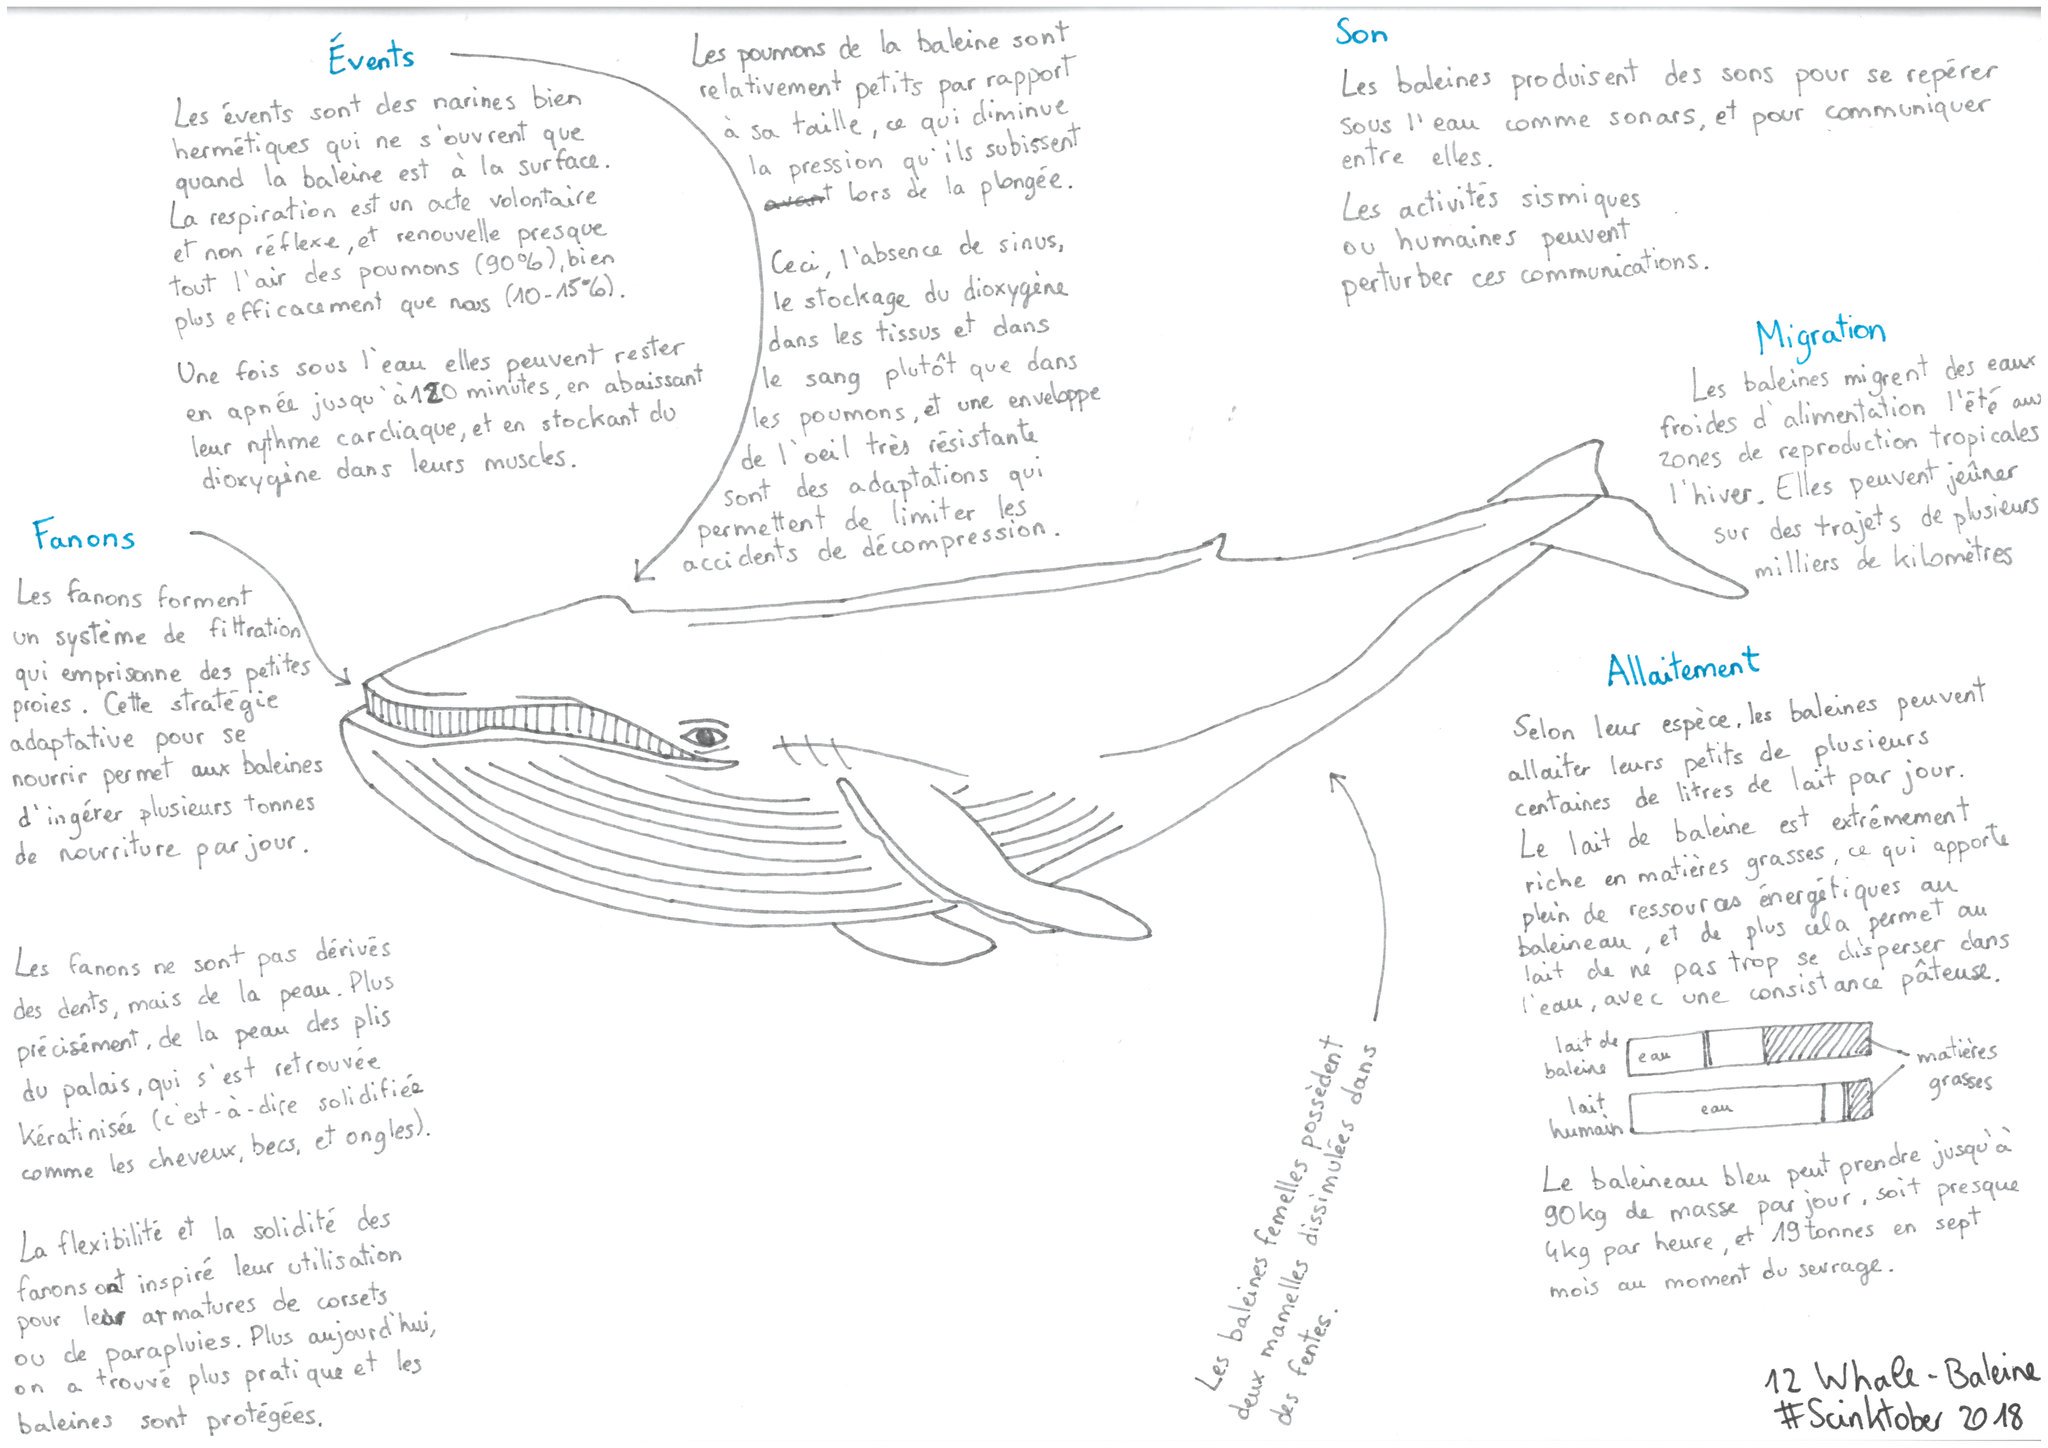 Évents
Les évents sont des narines bien
hermétiques qui ne s'ouvrent que
quand la baleine est à la surface.
La respiration est un acte volontaire
et non réflexe, et renouvelle presque
tout l'air des poumons (90%), bien
plus efficacement que nous (10-15%).
Une fois sous l'eau elles peuvent rester
en apnée jusqu'à 120 minutes, en abaissant
leur rythme cardiaque, et en stockant du
dioxygène dans leurs muscles.
Les poumons de la baleine sont
relativement petits par rapport
à sa taille, ce qui diminue
la pression qu'ils subissent
avant lors de la plongée.
Ceci, l'absence de sinus,
le stockage du dioxygène
dans les tissus et dans
le sang plutôt que dans
les poumons, et une enveloppe
de l'oeil très résistante
sont des adaptations qui
permettent de limiter les
accidents de décompression.
Son
Les baleines produisent des sons pour se repérer
sous l'eau comme sonars, et pour communiquer
entre elles.
Les activités sismiques
ou humaines peuvent
perturber ces communications.
Migration
Les baleines migrent des eaux
froides d'alimentation l'été aux
zones de reproduction tropicales
l'hiver. Elles peuvent jeûner
sur des trajets de plusieurs
milliers de kilomètres
Fanons
Les fanons forment
un système de filtration
qui emprisonne des petites
proies. Cette stratégie
adaptative pour se
nourrir permet aux baleines
d'ingérer plusieurs tonnes
de nourriture par jour.
Les fanons ne sont pas dérivés
des dents, mais de la peau. Plus
précisément, de la peau des plis
du palais, qui s'est retrouvée
kératinisée (c'est-à-dire solidifiée
comme les cheveux, becs, et ongles).
La flexibilité et la solidité des
fanons ont inspiré leur utilisation
pour leur armatures de corsets
ou de parapluies. Plus aujourd'hui,
on a trouvé plus pratique et les
baleines sont protégées.
Les baleines femelles possèdent
deux mamelles dissimulées dans
des fentes.
Allaitement
Selon leur espèce, les baleines peuvent
allaiter leurs petits de plusieurs
centaines de litres de lait par jour.
Le lait de baleine est extrêmement
riche en matières grasses, ce qui apporte
plein de ressources énergétiques au
baleineau, et de plus cela permet au
lait de ne pas trop se disperser dans
l'eau, avec une consistance pâteuse.
lait de
baleine
eau
lait
humain
eau
matières
grasses
Le baleineau bleu peut prendre jusqu'à
90kg de masse par jour, soit presque
4kg par heure, et 19 tonnes en sept
mois au moment du sevrage.
12 Whale - Baleine
#Scinktober 2018